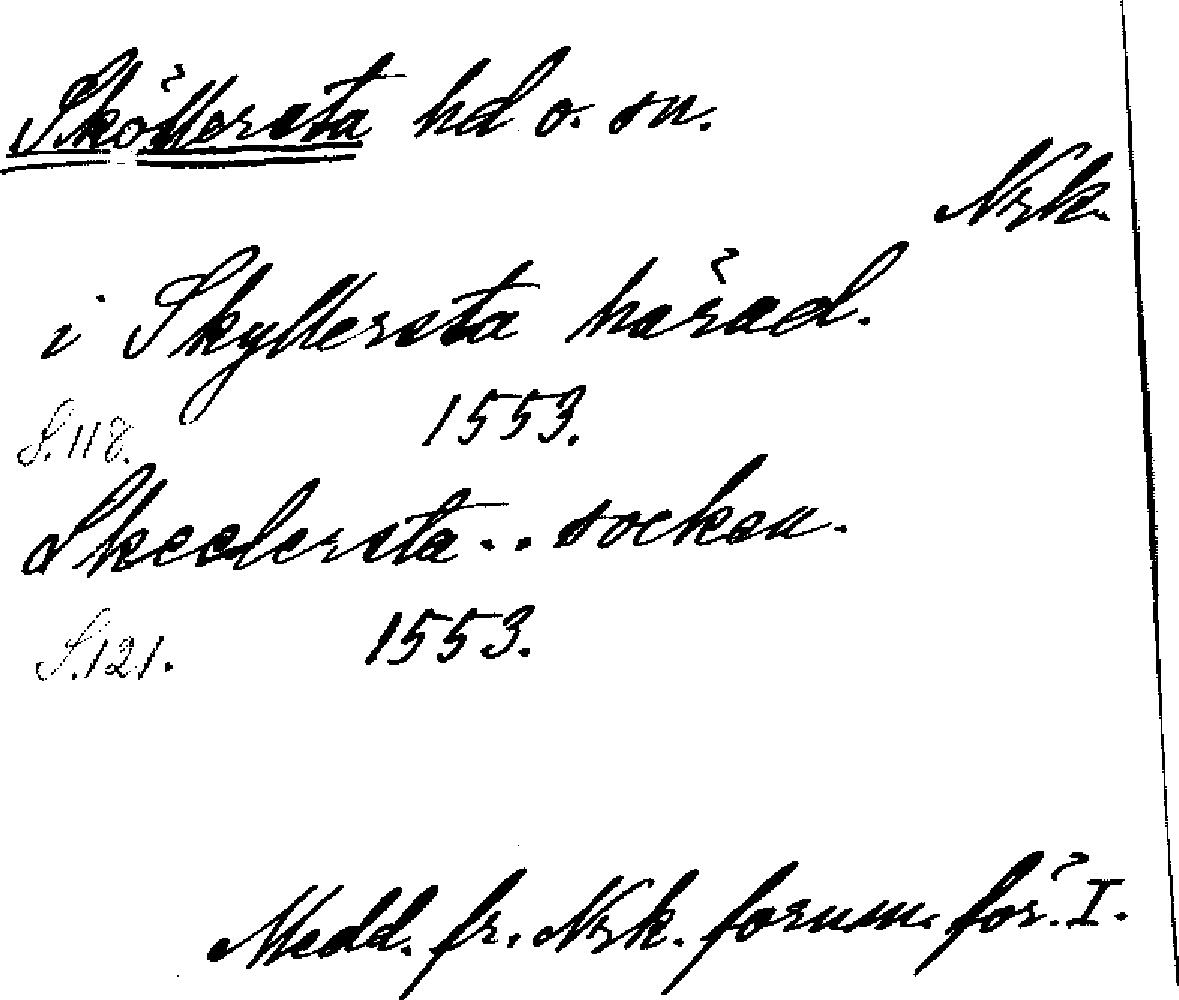 Sköllersta hd o. sn.
Nrk.
i Skyllersta härad.
S. 118. 1553.
Skeelersta .. socken.
S. 121. 1553.
Medd. fr. Nrk. fornm. för. I.